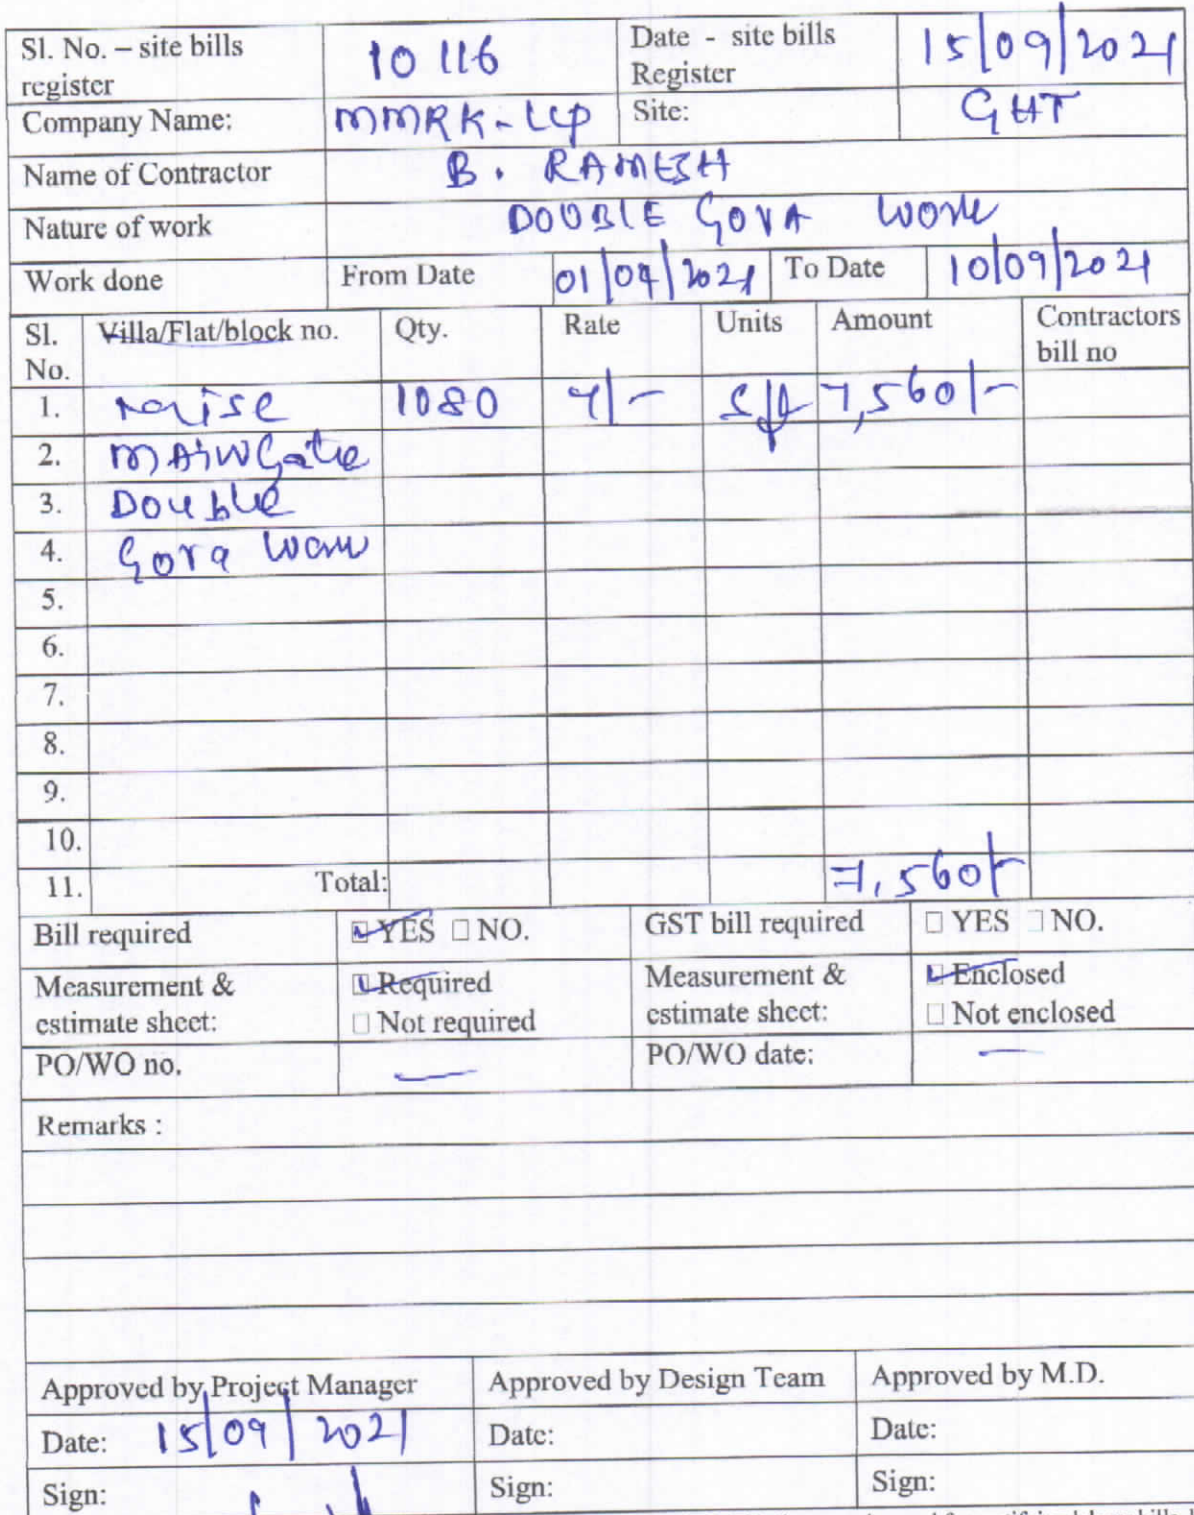 Sl. No. – site bills register 10116 Date - site bills Register 15/09/2021
Company Name: MMRK-LLP Site: GHT
Name of Contractor B. RAMESH
Nature of work DOUBLE GOVA WORK
Work done From Date 01/09/2021 To Date 10/09/2021
Sl. No. Villa/Flat/block no. Qty. Rate Units Amount Contractors bill no
1. 1080 7/- Sft 7,560/-
2. MAIN Gate
3. Double
4. Gova Work
5.
6.
7.
8.
9.
10.
11. Total: 7,560/-
Bill required YES NO. GST bill required YES NO.
Measurement & estimate sheet: Required Not required Measurement & estimate sheet: Enclosed Not enclosed
PO/WO no. — PO/WO date: —
Remarks :
Approved by Project Manager Approved by Design Team Approved by M.D.
Date: 15/09/2021 Date: Date:
Sign: Sign: Sign: